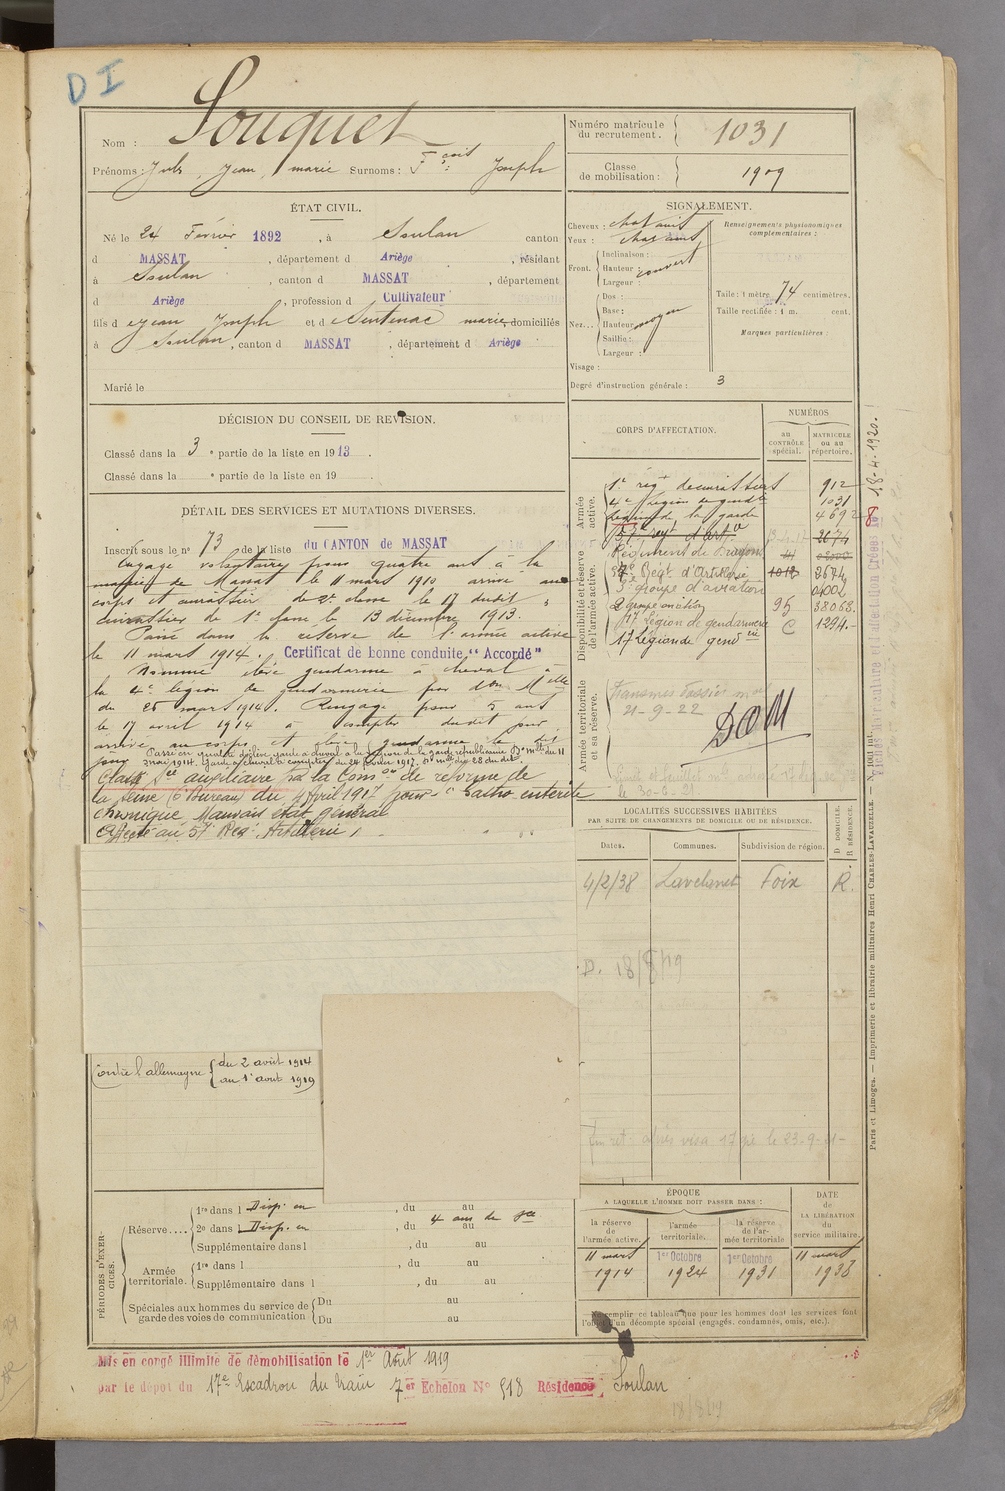 D I
Nom : Souquet
Prénoms : Jules, Jean, marie Surnoms : Fçois Joseph
Numéro matricule du recrutement. 1031
Classe de mobilisation : 1909
ÉTAT CIVIL.
Né le 24 Février 1892, à Soulan canton
d MASSAT, département d Ariège, résidant
à Soulan, canton d MASSAT, département
d Ariège, profession d Cultivateur
fils d Jean Joseph et d Sentenac marie, domiciliés
à Soulan, canton d MASSAT, département d Ariège
Marié le
SIGNALEMENT.
Cheveux : chatains
Yeux : chatains
Front. Inclinaison :
Hauteur : couvert
Largeur :
Nez... Dos :
Base :
Hauteur moyen
Saillie :
Largeur :
Visage :
Degré d'instruction générale : 3
Renseignements physionomiques complémentaires :
Taille : 1 mètre 74 centimètres.
Taille rectifiée : 1 m. cent.
Marques particulières :
DÉCISION DU CONSEIL DE REVISION.
Classé dans la 3e partie de la liste en 1913.
Classé dans la e partie de la liste en 19
DÉTAIL DES SERVICES ET MUTATIONS DIVERSES.
Inscrit sous le n° 73 de la liste du CANTON de MASSAT
Engagé volontaire pour quatre ans à la
mairie de Massat le 11 mars 1910 arrivé au
corps et cuirassier de 2e classe le 17 dudit,
cuirassier de 1e classe le 13 décembre 1913.
Passé dans la réserve de l'armée active
le 11 mars 1914. Certificat de bonne conduite "Accordé"
Nommé élève gendarme à cheval à
la 4e légion de gendarmerie par don Melle
du 25 mars 1914. Rengagé pour 5 ans
le 17 avril 1914 à compter dudit jour
arrivé au corps et élève gendarme le dit
jour Passé en qualité d'élève garde à cheval à la légion de la garde républicaine Dn mlle du 11
mai 1914. Garde à cheval à compter du 24 février 1917. Dn mlle du 28 du dit.
Classé Sce auxiliaire par la Comon de réforme de
la Seine (6e Bureau) du 4 Avril 1917 pour "Gastro-entérite
chronique Mauvais état général
Affecté au 57e Reg. Artillerie
Contre l'allemagne du 2 août 1914
au 1er aout 1919
CORPS D'AFFECTATION.
NUMÉROS
au CONTRÔLE spécial.
MATRICULE ou au répertoire.
Armée active.
1er régt de cuirassiers 912
4e légion de gendie 1031
Légion de la garde 4692
Disponibilité et réserve de l'armée active.
57e régt d'artie 2674
Régiment de Dragons
57e Régt d'Artillerie 1012 3674
3e groupe d'aviation
2 groupe aviation 95 38068
17 Légion de gendarmerie C 1294.-
17 Légion de gendie
Armée territoriale et sa réserve.
Transmis dossier
21-9-22
DOM
le 30-6-21
LOCALITÉS SUCCESSIVES HABITÉES
PAR SUITE DE CHANGEMENTS DE DOMICILE OU DE RÉSIDENCE.
Dates. Communes. Subdivision de région. D DOMICILE. R RÉSIDENCE.
4/2/38 Lavelanet Foix R.
D. 18/8/19
PÉRIODES D'EXERCICES.
Réserve.... 1re dans l Disp. en, du au
2e dans l Disp. en, du au 4 ans de sce
Supplémentaire dans l, du au
Armée territoriale. 1re dans l, du au
Supplémentaire dans l, du au
Spéciales aux hommes du service de garde des voies de communication Du au
Du au
ÉPOQUE
A LAQUELLE L'HOMME DOIT PASSER DANS :
la réserve de l'armée active. l'armée territoriale. la réserve de l'armée territoriale
DATE de LA LIBÉRATION du service militaire.
11 mars 1914
1er Octobre 1924
1er Octobre 1931
11 mars 1938
Ne remplir ce tableau que pour les hommes dont les services font
l'objet d'un décompte spécial (engagés, condamnés, omis, etc.).
Mis en congé illimité de démobilisation le 1er Août 1919
par le dépôt du 17e Escadron du train 7er Echelon N° 518 Résidence Soulan
18/8/19
Paris et Limoges. — Imprimerie et librairie militaires Henri CHARLES-LAVAUZELLE. — N° 1001 Int.
18-4-1920.